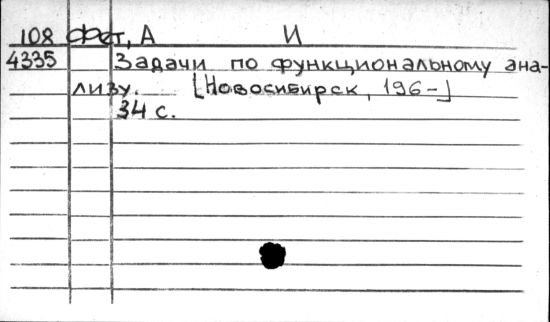 108 Фет, А И
4335 Задачи по функциональному ана-
лизу. [Новосибирск, 196-]
34 с.